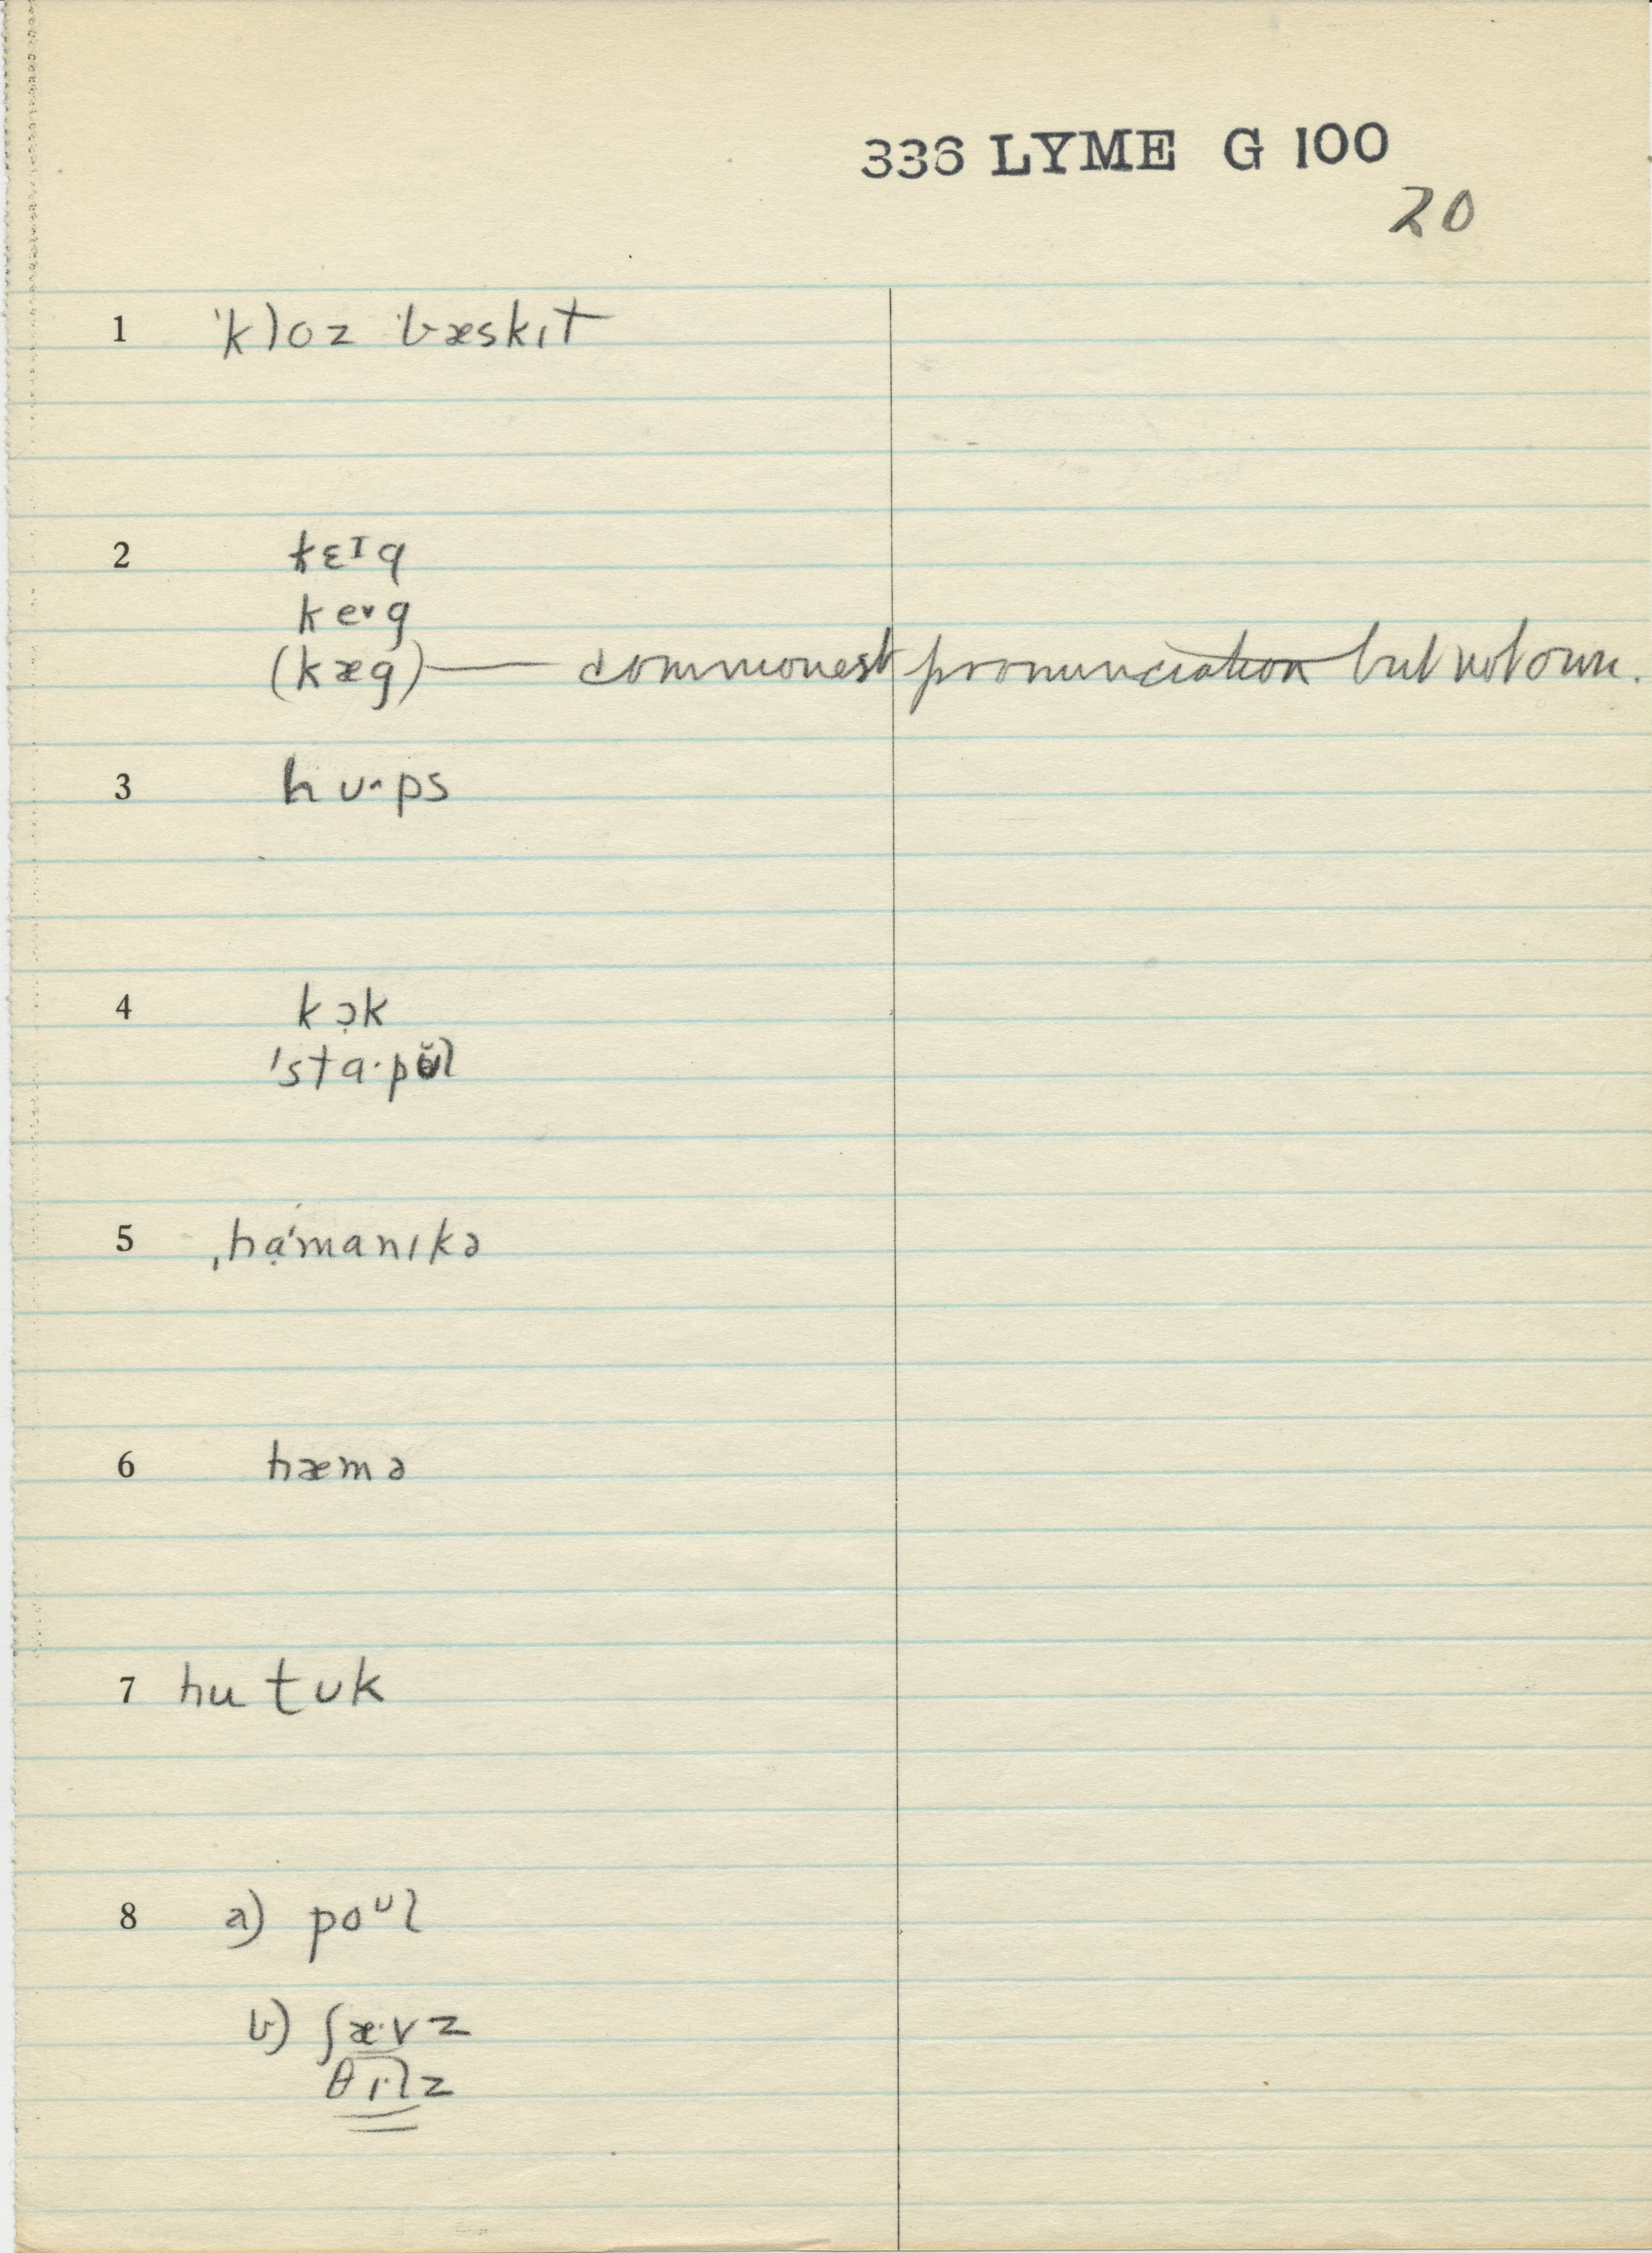 336 LYME G 100
20
1 ˈkloz ˈbæskɪt
2 kɛᴵg
ke˅g
(kæg) — commonest pronunciation but not own.
3 hʊ˄ps
4 kɔ̣k
ˈstɑ·pʊ̆l
5 ˌhạˈmanɪkə
6 hæmə
7 hu tʊk
8 a) poᶷl
b) ʃæ·vz
θɪ·lz